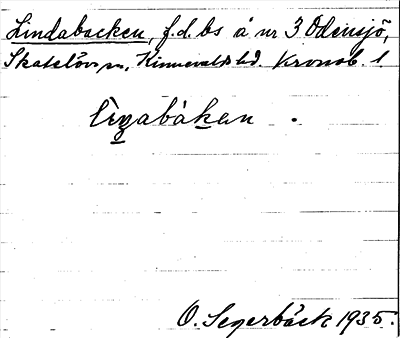 Lindabacken, f.d. bs å nr 3 Odensjö,
Skatelövs sn, Kinnevalds hd. Kronob. l
O. Segerbäck 1935.